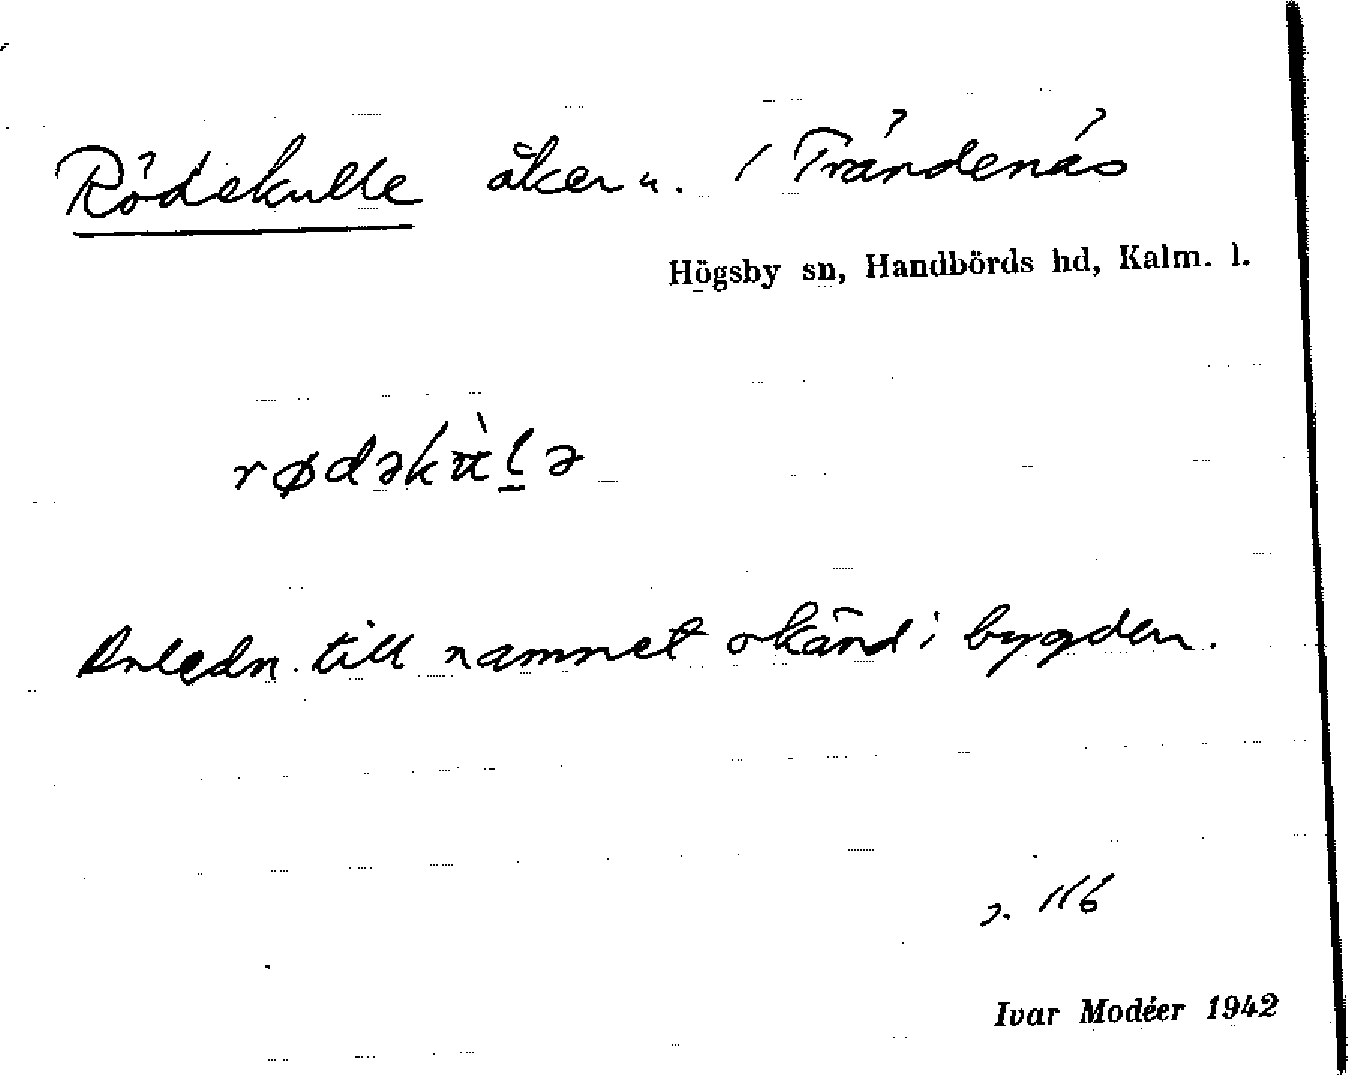 Rödekulle åker u. / Trändenäs
Högsby sn, Handbörds hd, Kalm. l.
rødəkùlə
Anledn. till namnet okänd i bygden.
s. 116
Ivar Modéer 1942